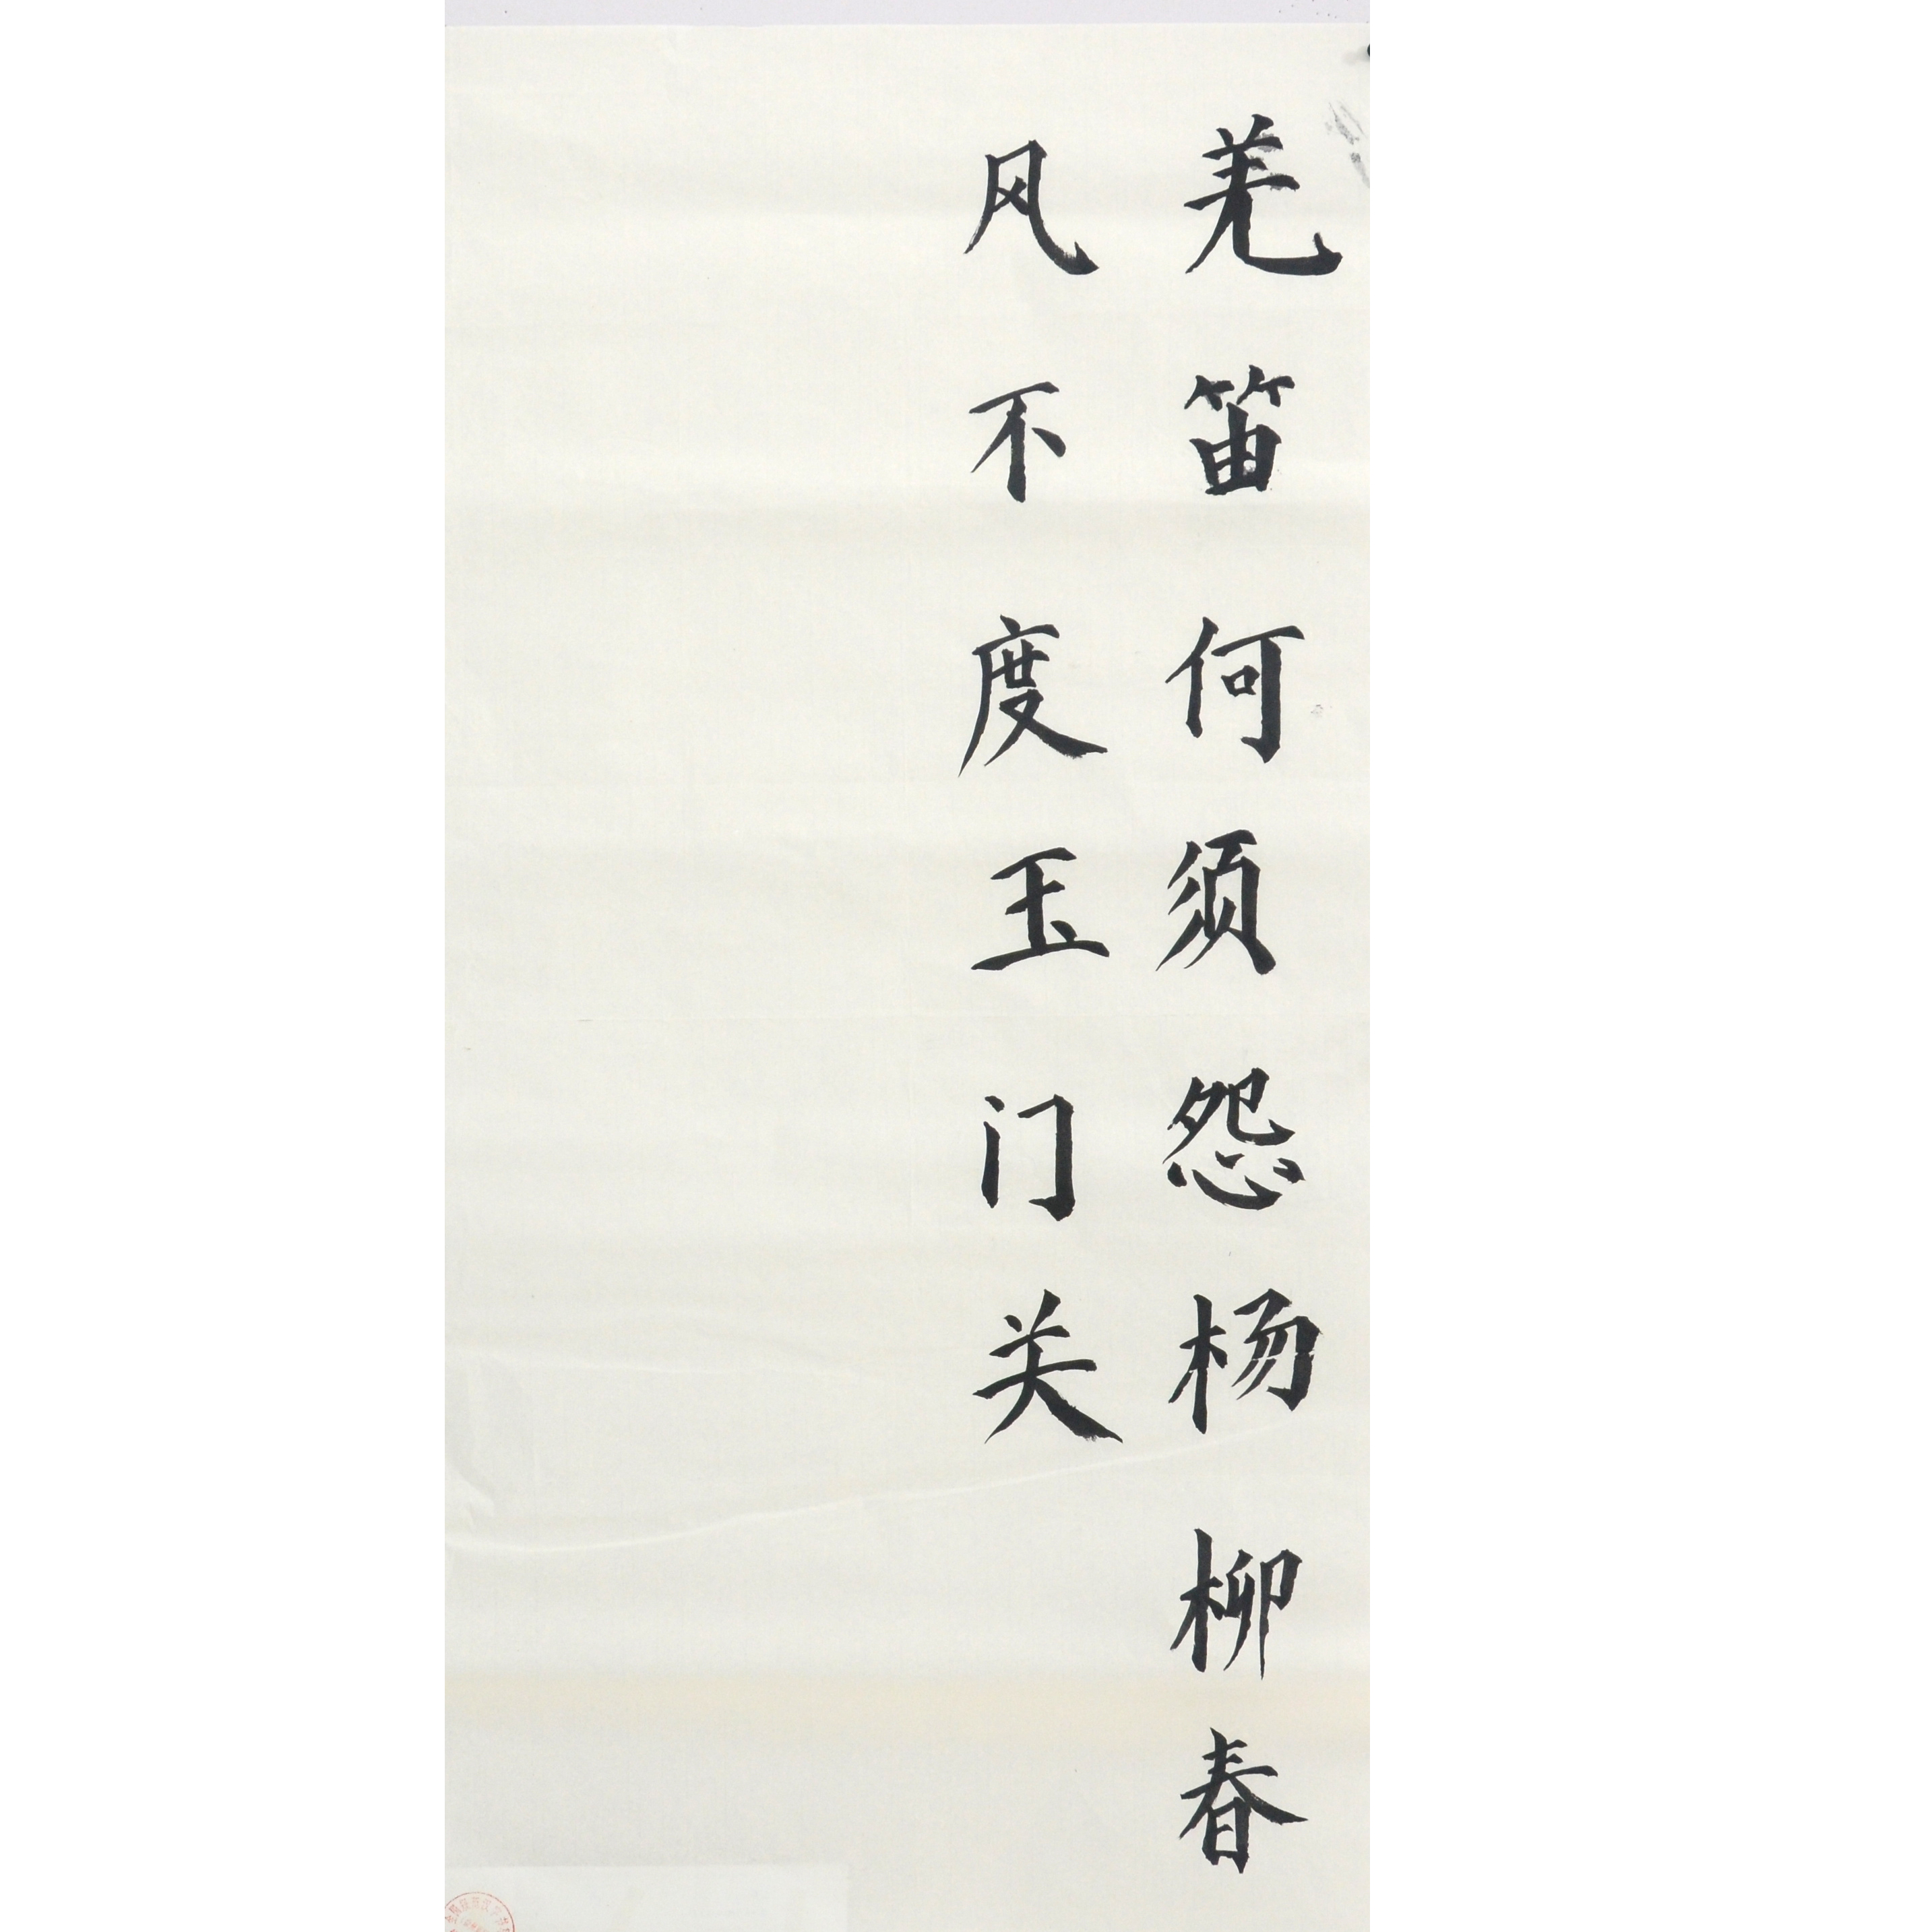 羌笛何须怨杨柳春
风不度玉门关